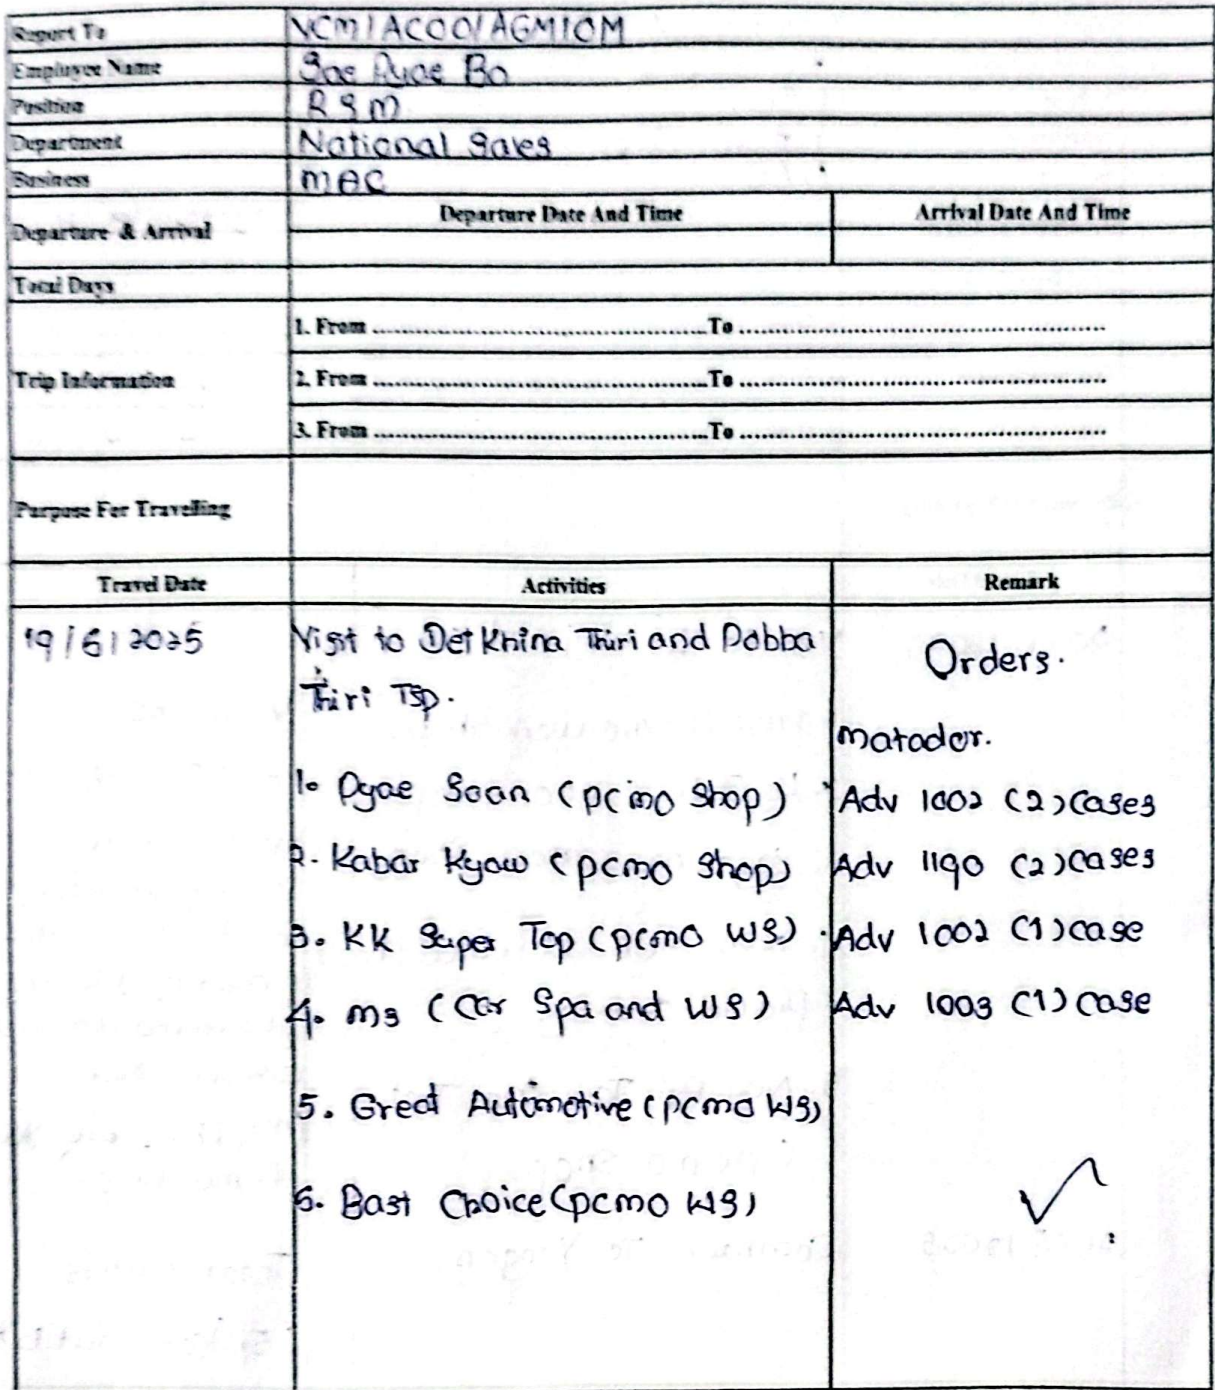 Report To VCM/ACOO/AGM/OM
Employee Name Soe Pyae Bo
Position RSM
Department National Sales
Business MAC
Departure & Arrival Departure Date And Time Arrival Date And Time
Total Days
Trip Information
1. From ........ To ........
2. From ........ To ........
3. From ........ To ........
Purpose For Travelling
Travel Date Activities Remark
19/6/2025 Visit to Det Khina Thiri and Pobba Orders.
Thiri Tsp.
Matador.
1. Pyae Soan (pcmo shop) Adv 1002 (2) cases
2. Kabar Kyaw (pcmo shop) Adv 1190 (2) cases
3. KK Super Top (pcmo WS) Adv 1002 (1) case
4. ms (Car Spa and WS) Adv 1003 (1) case
5. Great Automotive (pcmo WS)
6. Bast Choice (pcmo WS)